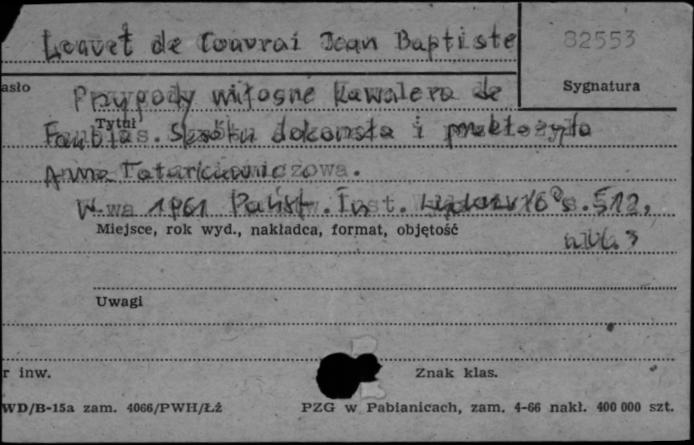 Louvet de Couvrai Jean Baptiste
82553
asło
Przygody miłosne kawalera de
Sygnatura
Tytuł
Faublas. Skrótu dokonała i przełożyła
Anna Tatarkiewiczowa.
W-wa 1961 Państ. Inst. Wydawn. 16° s. 512,
Miejsce, rok wyd., nakładca, format, objętość
nlb. 3
Uwagi
r inw.
Znak klas.
WD/B-15a zam. 4066/PWH/Łż
PZG w Pabianicach, zam. 4-66 nakł. 400 000 szt.